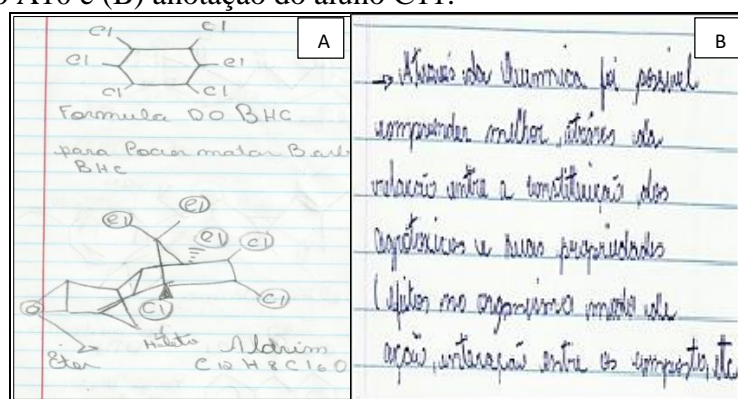 o A10 e (B) anotação do aluno C11.
A
Cl Cl
Cl Cl
Cl Cl
Formula DO BHC
para Pocior matar Barb
BHC
Cl Cl
Cl Cl
Cl
Cl
O
Haleto Aldrim
Éter C12 H8 Cl6 O
B
→ Através da Quimica foi possivel
compreender melhor, através da
relacão entre a constituição dos
agrotoxicos e suas propriedades
(efeitos no organismo modo de
ação, interação entre os composto, etc